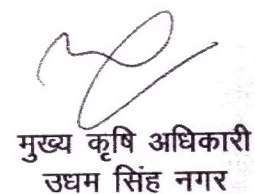 मुख्य कृषि अधिकारी
उधम सिंह नगर